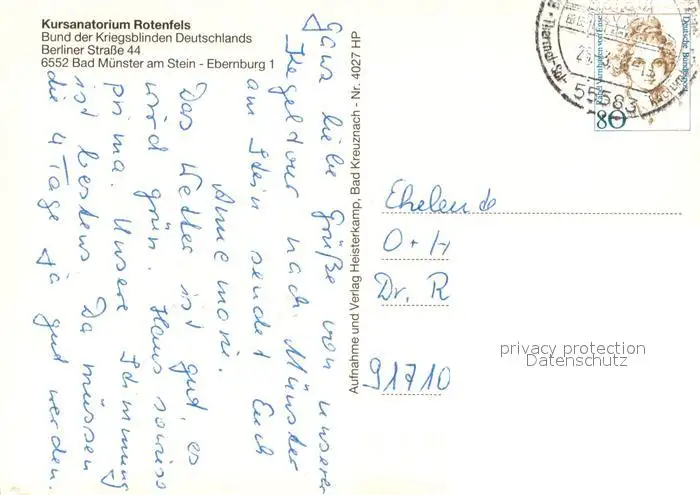 Kursanatorium Rotenfels
Bund der Kriegsblinden Deutschlands
Berliner Straße 44
6552 Bad Münster am Stein - Ebernburg 1
Ganz liebe Grüße von unserer
Kegeltour nach Münster
am Stein sendet Euch
Annemarie.
Das Wetter ist gut, es
wird grün. Haus sowieso
prima. Unsere Stimmung
ist bestens. Da müssen
die 4 Tage ja gut werden.
Aufnahme und Verlag Heisterkamp, Bad Kreuznach - Nr. 4027 HP
Deutsche Bundespost
80
55583
Eheleude
O + H
Dr. R
91710
privacy protection
Datenschutz